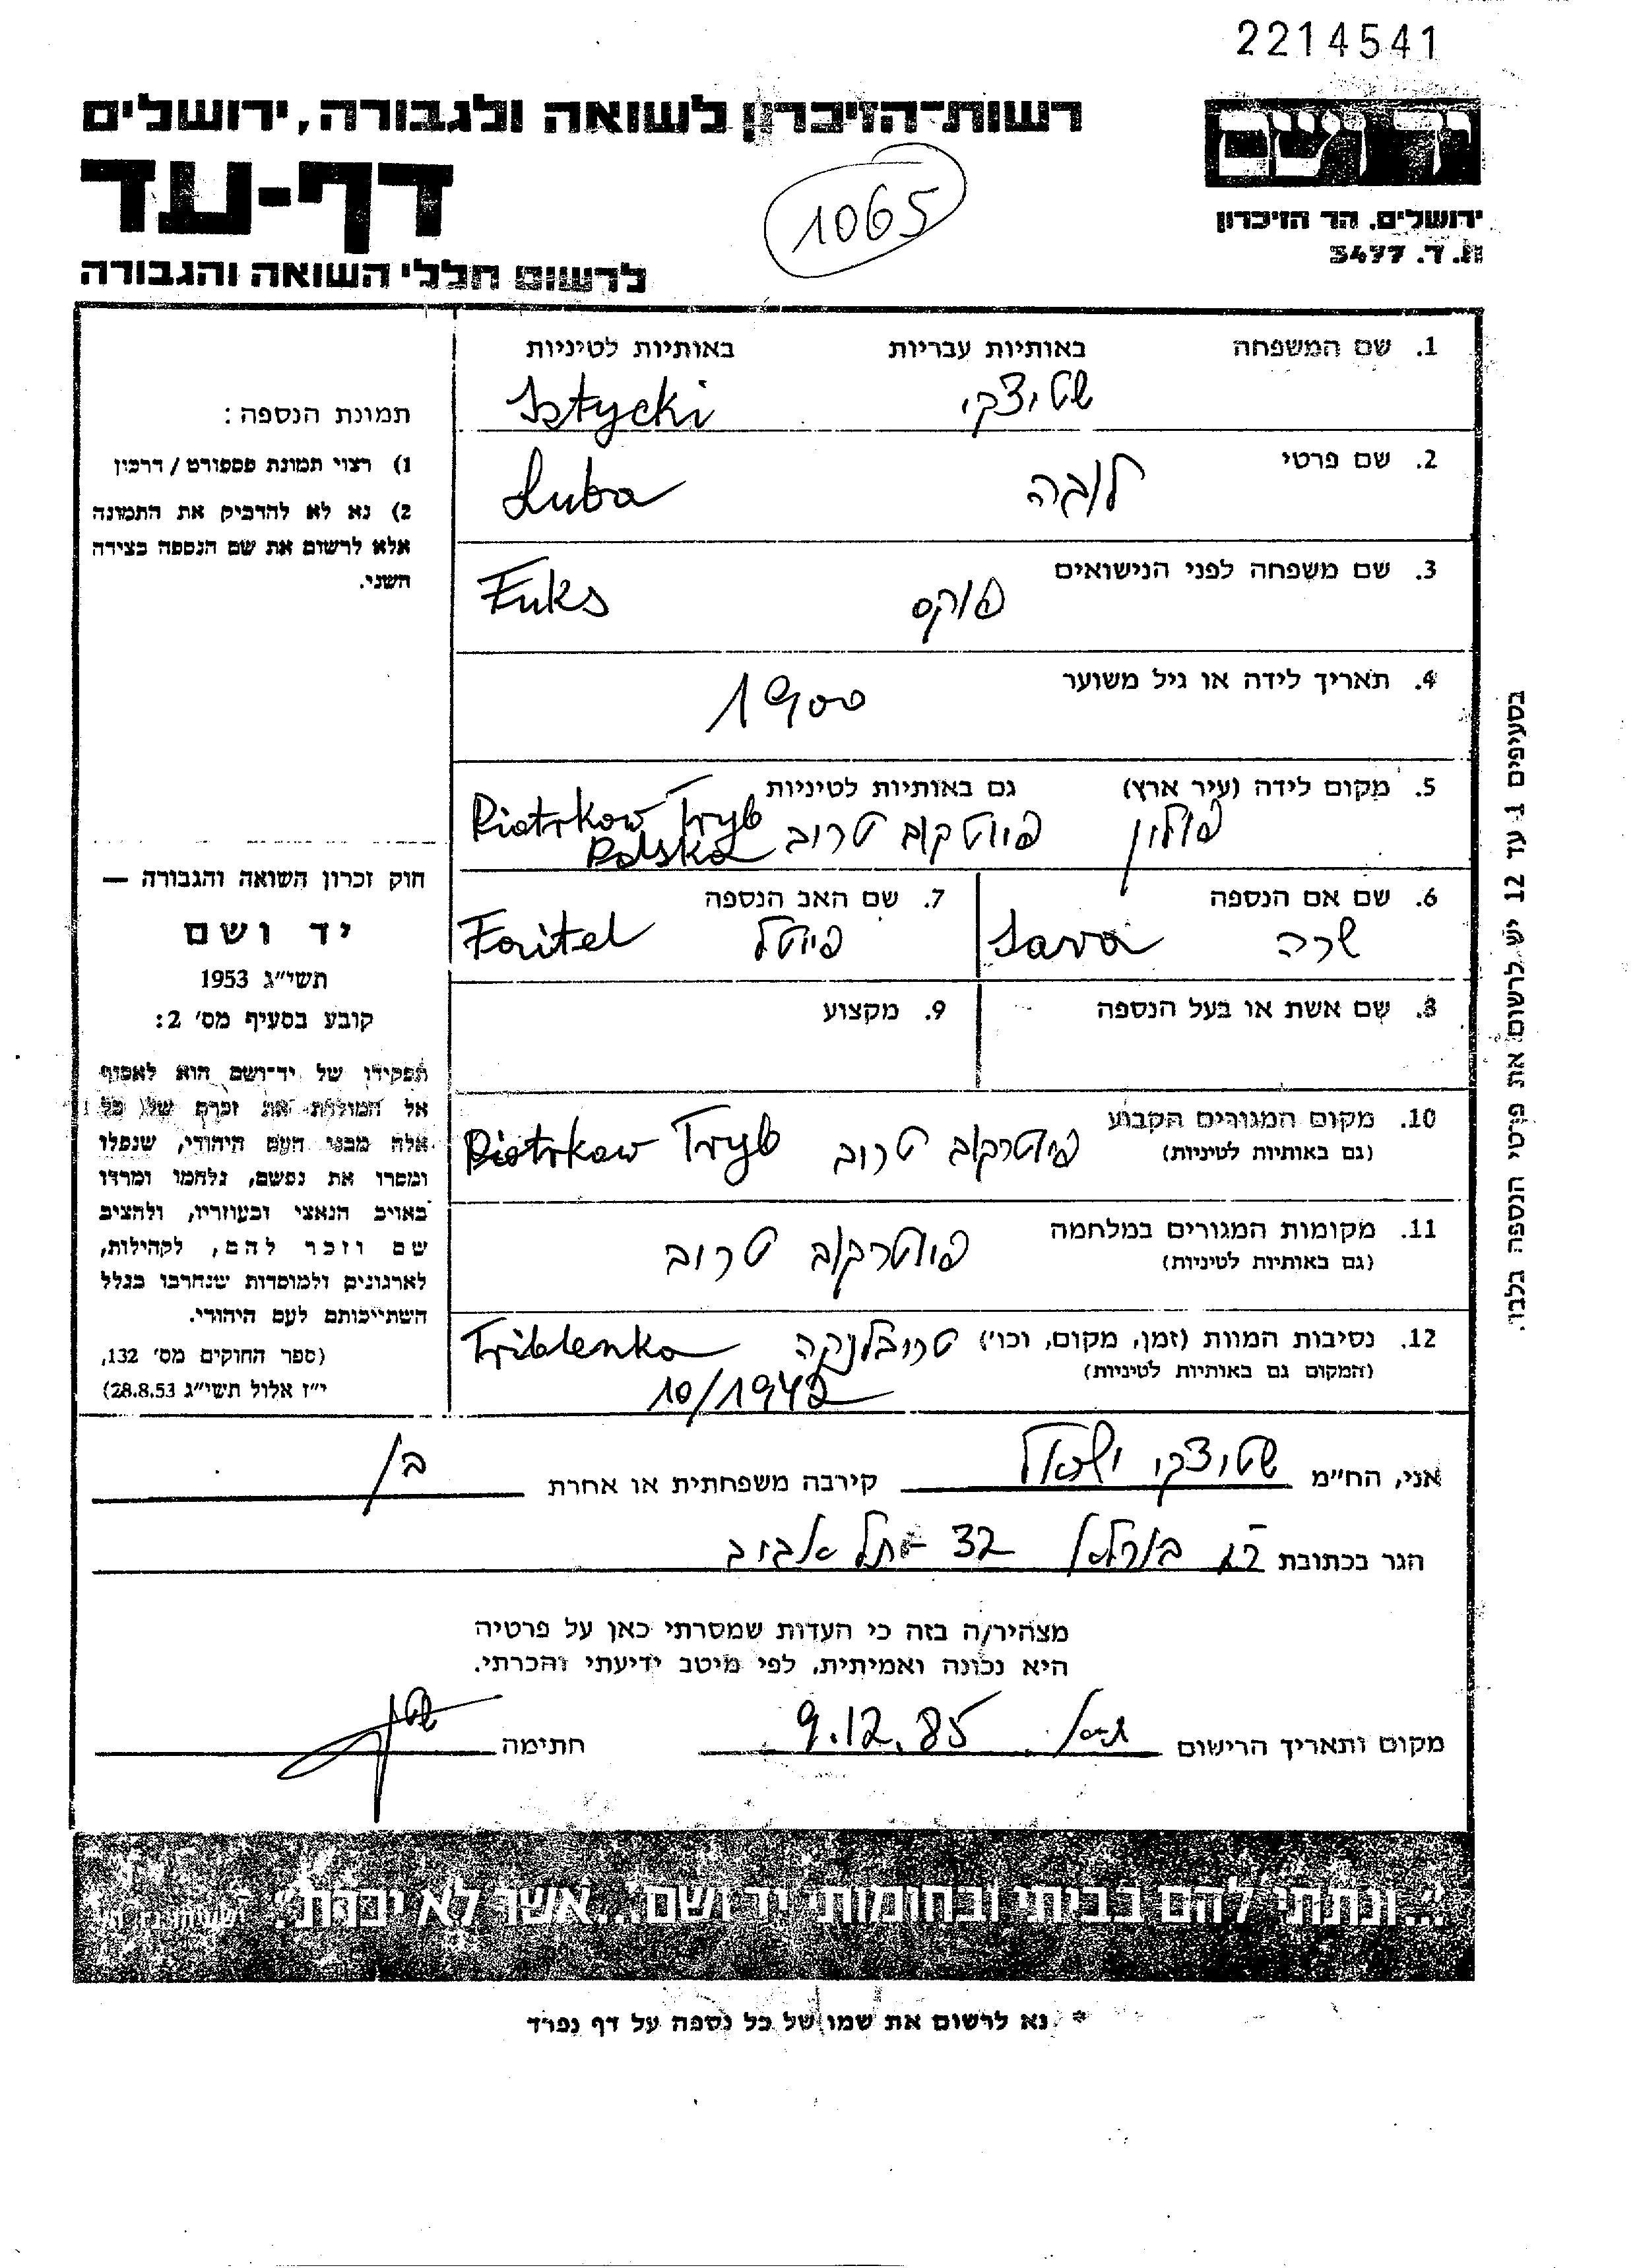 2214541
רשות־הזיכרון לשואה ולגבורה, ירושלים
יד ושם
דף-עד
1065
ירושלים. הר הזיכרון
ת. ד. 3477
לרשום חללי השואה והגבורה
1. שם המשפחה באותיות עבריות באותיות לטיניות
שטיצקי Sztycki
2. שם פרטי לובה Luba
3. שם משפחה לפני הנישואים
פוקס Fuks
4. תאריך לידה או גיל משוער
1900
5. מקום לידה (עיר ארץ) גם באותיות לטיניות
פולין פיוטקוב טרוב Piotrkow Tryb
Polska
6. שם אם הנספה
שרה Sara
7. שם האב הנספה
פייטל Faitel
8. שם אשת או בעל הנספה
9. מקצוע
10. מקום המגורים הקבוע
(גם באותיות לטיניות)
פיוטרקוב טרוב Piotrkow Tryb
11. מקומות המגורים במלחמה
(גם באותיות לטיניות)
פיוטרקוב טרוב
12. נסיבות המוות (זמן, מקום, וכו') טריבלנקה Triblenka
(המקום גם באותיות לטיניות)
10/1942
תמונת הנספה:
1) רצוי תמונת פספורט/דרכון
2) נא לא להדביק את התמונה
אלא לרשום את שם הנספה בצידה
השני.
חוק זכרון השואה והגבורה —
יד ושם
תשי״ג 1953
קובע בסעיף מס׳ 2:
תפקידו של יד־ושם הוא לאסוף
אל המולדת את זכרם של כל
אלה מבני העם היהודי, שנפלו
ומסרו את נפשם, נלחמו ומרדו
באויב הנאצי ובעוזריו, ולהציב
שם וזכר להם, לקהילות,
לארגונים ולמוסדות שנחרבו בגלל
השתייכותם לעם היהודי.
(ספר החוקים מס׳ 132,
י״ז אלול תשי״ג 28.8.53)
בסעיפים 1 עד 12 יש לרשום את פרטי הנספה בלבד.
אני, הח״מ שטיצקי ישראל קירבה משפחתית או אחרת בן
הגר בכתובת 32 תל אביב
מצהיר/ה בזה כי העדות שמסרתי כאן על פרטיה
היא נכונה ואמיתית, לפי מיטב ידיעתי והכרתי.
מקום ותאריך הרישום 9.12.85 חתימה
״...ונתתי להם בביתי ובחומותי יד ושם...אשר לא יכרת״.
* נא לרשום את שמו של כל נספה על דף נפרד